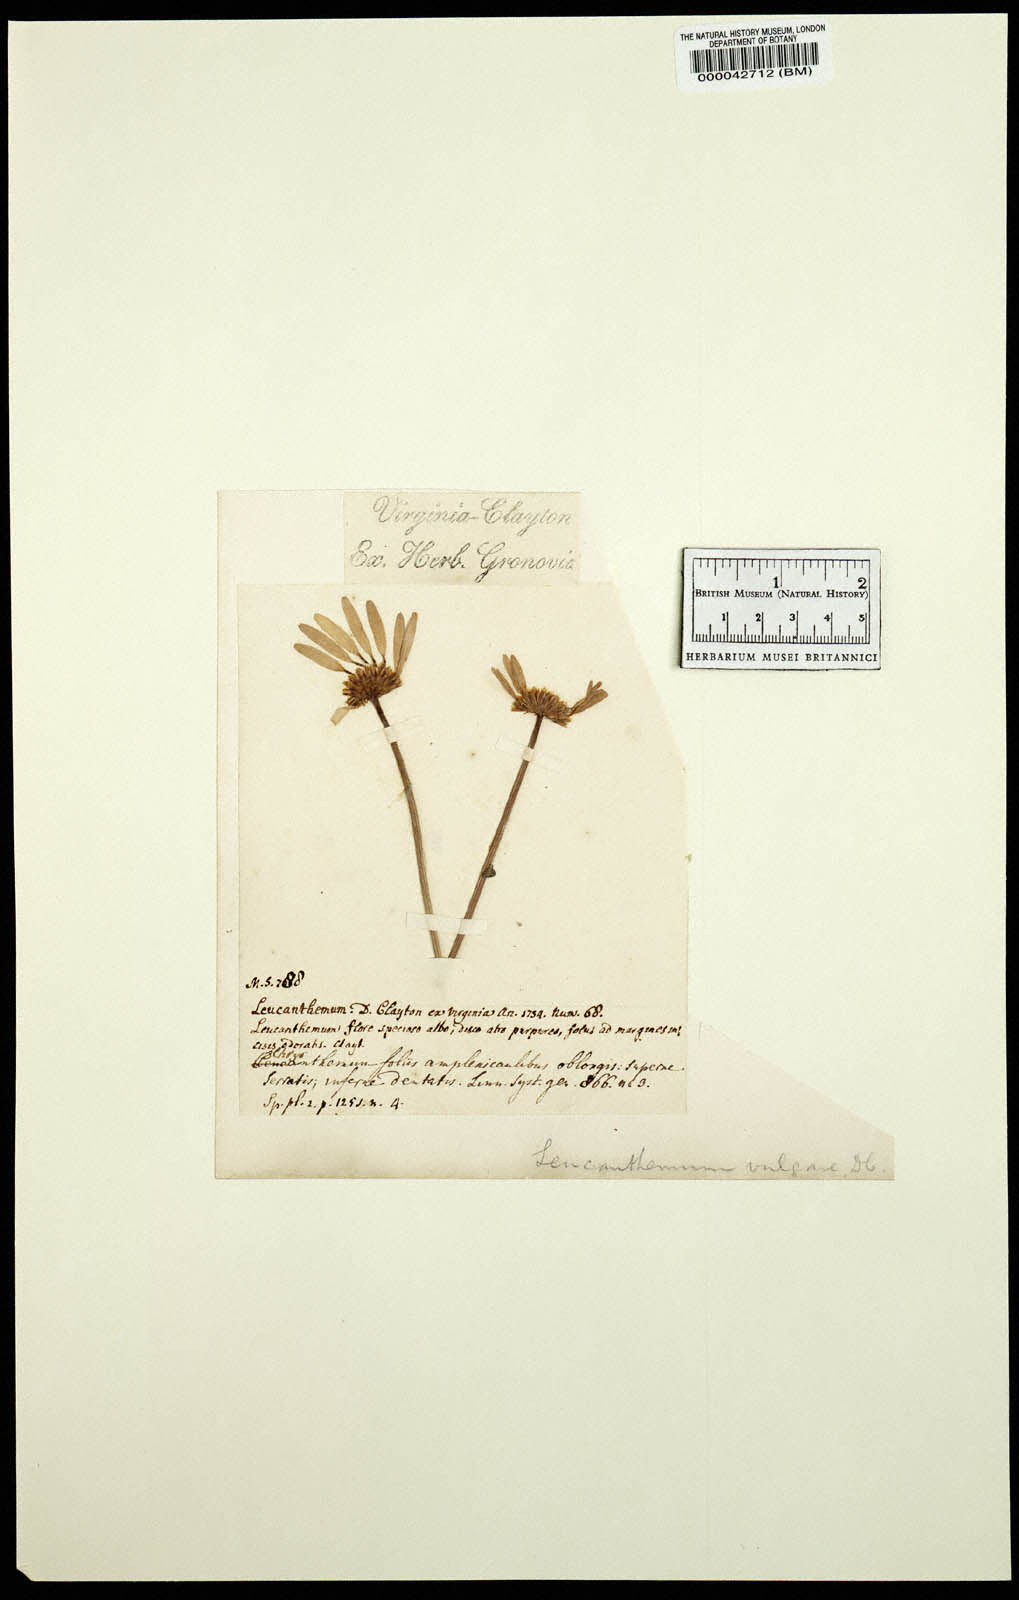 THE NATURAL HISTORY MUSEUM, LONDON
DEPARTMENT OF BOTANY
000042712 (BM)
Virginia-Clayton
Ex. Herb. Gronovii
1 2
BRITISH MUSEUM (NATURAL HISTORY)
1 2 3 4 5
HERBARIUM MUSEI BRITANNICI
Leucanthemum: D. Clayton ex Virginia An. 1734. Num. 68.
Leucanthemum flore specioso albo, disco atro purpureo, foliis ad margines in:
cisis, odoratis. Clayt.
Chrysanthemum foliis amplexicaulibus oblongis: superne
serratis, inferne dentatis. Linn. Syst. gen. 866. n. 3.
Sp. pl. 2. p. 1251. n. 4.
Leucanthemum vulgare DC.